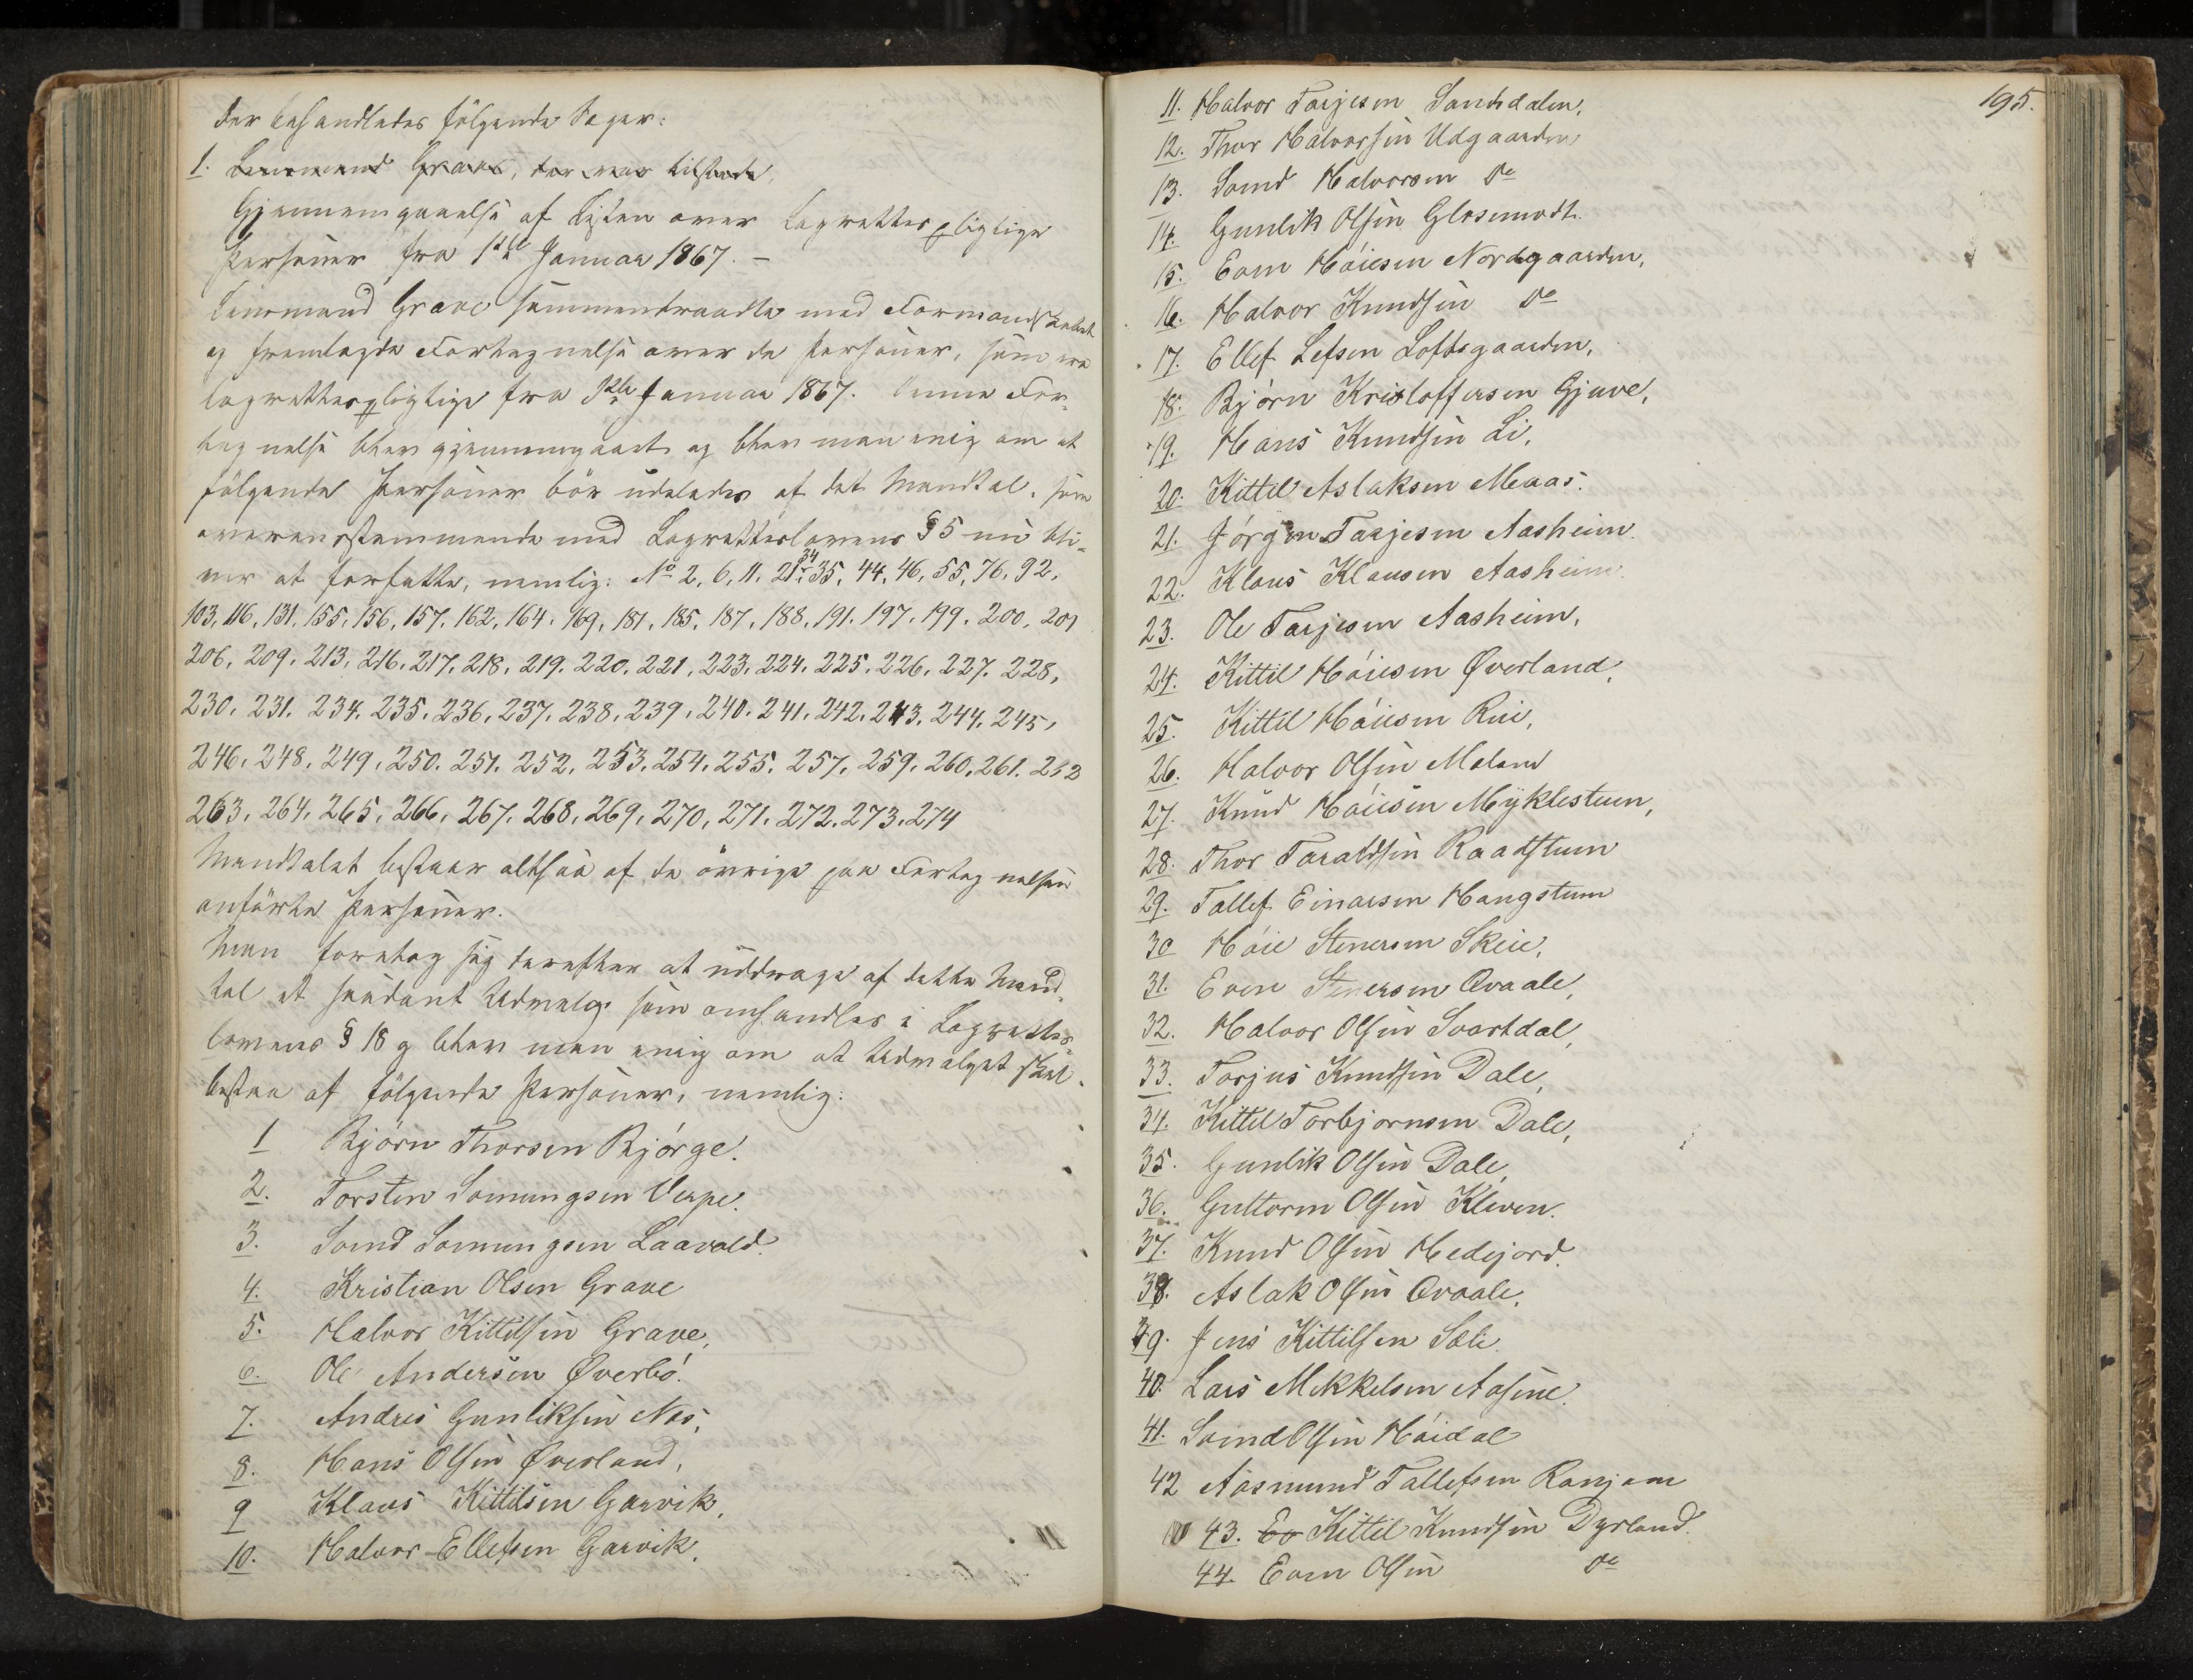 der behandledes følgende Sager:
1. Lensmand Grave, der var tilstede,
Gjennemgaaelse af Listen over Lagrettespligtige
Personer fra 1ste Januar 1867. –
Lensmand Grave sammentraadte med Formandskabet
og fremlagde Fortegnelse over de Personer, som ere
lagrettespligtige fra 1ste Januar 1867. Denne For-
tegnelse blev gjennemgaaet og blev man enig om at
følgende Personer bør udelades af det Mandtal, som
overensstemmende med Lagretteslovens § 5 nu bli-
ver at forfatte, nemlig: No 2, 6, 11, 21, 34, 35, 44, 46, 55, 76, 92,
103, 116, 131, 155, 156, 157, 162, 164, 169, 181, 185, 187, 188, 191, 197, 199, 200, 201
206, 209, 213, 216, 217, 218, 219, 220, 221, 223, 224, 225, 226, 227, 228,
230, 231, 234, 235, 236, 237, 238, 239, 240, 241, 242, 243, 244, 245,
246, 248, 249, 250, 251, 252, 253, 254, 255, 257, 259, 260, 261, 262
263, 264, 265, 266, 267, 268, 269, 270, 271, 272, 273, 274
Mandtalet bestaar altsaa af de øvrige paa Fortegnelsen
anførte Personer.
Man foretog sig derefter at uddrage af dette Mand-
tal et saadant Udvalg som omhandles i Lagrettes-
lovens § 18 og blev man enig om at Udvalget skal
bestaa af følgende Personer, nemlig:
1 Bjørn Thorsen Bjørge.
2. Torsten Somungsen Verpe.
3. Svend Somungsen Laavald.
4. Kristian Olsen Grave
5. Halvor Kittilsen Grave,
6. Ole Andersen Øverbø.
7. Andres Gunliksen Nes,
8. Hans Olsen Øverland,
9 Klaus Kittilsen Garvik,
10. Halvor Ellefsen Garvik,
195.
11. Halvor Tarjesen Sanddalen,
12. Thor Halvorsen Udgaarden
13. Svend Halvorsen do
14. Gunlik Olsen Glosemodt.
15. Even Høiesen Nordgaarden,
16. Halvor Knudsen do
17. Ellef Lefsen Loftsgaarden,
18. Bjørn Kristoffersen Gjuve,
19. Hans Knudsen Li,
20. Kittil Aslaksen Maas.
21. Jørgen Tarjesen Aasheim.
22. Klaus Klausen Aasheim.
23. Ole Tarjesen Aasheim,
24. Kittil Høiesen Øverland,
25. Kittil Høiesen Rui,
26. Halvor Olsen Meland
27. Knud Høiesen Myklestuen,
28. Thor Taraldsen Raadstuen
29. Tallef Einarsen Haugstuen
30 Høie Stenersen Skeie,
31. Even Stenersen Qvaale,
32. Halvor Olsen Svartdal,
33. Torjus Knudsen Dale,
34. Kittil Torbjornsen Dale,
35. Gunlik Olsen Dale,
36. Guttorm Olsen Kleven.
37. Knud Olsen Hedejord.
38. Aslak Olsen Qvaale,
39. Jens Kittilsen Sæli
40. Lars Mikkelsen Aasine.
41. Svend Olsen Høidal
42 Aasmund Tallefsen Ranjem
43. Ev Kittil Knudsen Dyrland.
44. Even Olsen do